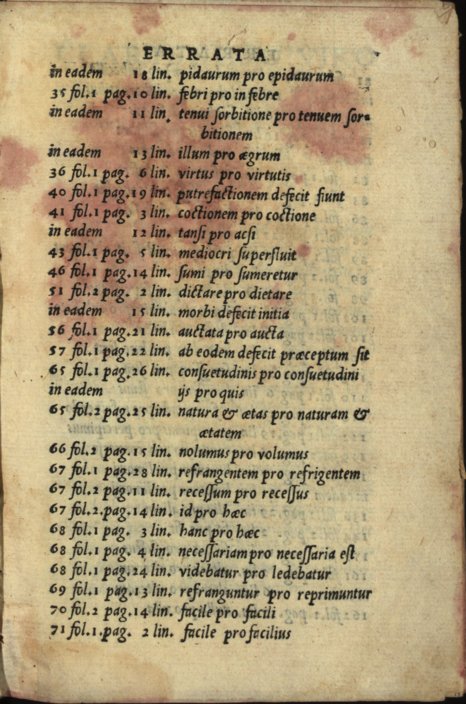 ERRATA
in eadem 18 lin. pidaurum pro epidaurum
35 fol.1 pag.10 lin. febri pro in febre
in eadem 11 lin. tenui ſorbitione pro tenuem ſor-
bitionem
in eadem 13 lin. illum pro ægrum
36 fol.1 pag. 6 lin. virtus pro virtutis
40 fol.1 pag.19 lin. putrefactionem defecit fiunt
41 fol.1 pag. 3 lin. coctionem pro coctione
in eadem 12 lin. tanſi pro acſi
43 fol.1 pag. 5 lin. mediocri ſuperfluit
46 fol.1 pag.14 lin. ſumi pro ſumeretur
51 fol.2 pag. 2 lin. dictare pro dietare
in eadem 15 lin. morbi defecit initia
56 fol.1 pag.21 lin. auctata pro aucta
57 fol.1 pag.22 lin. ab eodem defecit præceptum ſit
65 fol.1 pag.26 lin. conſuetudinis pro conſuetudini
in eadem ijs pro quis
65 fol.2 pag.25 lin. natura & ætas pro naturam &
ætatem
66 fol.2 pag.15 lin. nolumus pro volumus
67 fol.1 pag.28 lin. refrangentem pro refrigentem
67 fol.2 pag.11 lin. receſſum pro receſſus
67 fol.2.pag.14 lin. id pro hæc
68 fol.1 pag. 3 lin. hanc pro hæc
68 fol.1 pag. 4 lin. neceſſariam pro neceſſaria eſt
68 fol.1 pag.24 lin. videbatur pro ledebatur
69 fol.1 pag.13 lin. refranguntur pro reprimuntur
70 fol.2 pag.14 lin. facile pro facili
71 fol.1.pag. 2 lin. facile pro facilius